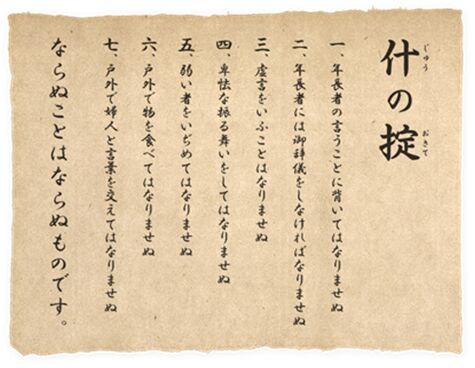 什の掟
じゅう
おきて
一、年長者の言うことに背いてはなりませぬ
二、年長者には御辞儀をしなければなりませぬ
三、虚言をいふことはなりませぬ
四、卑怯な振る舞いをしてはなりませぬ
五、弱い者をいぢめてはなりませぬ
六、戸外で物を食べてはなりませぬ
七、戸外で婦人と言葉を交えてはなりませぬ
ならぬことはならぬものです。